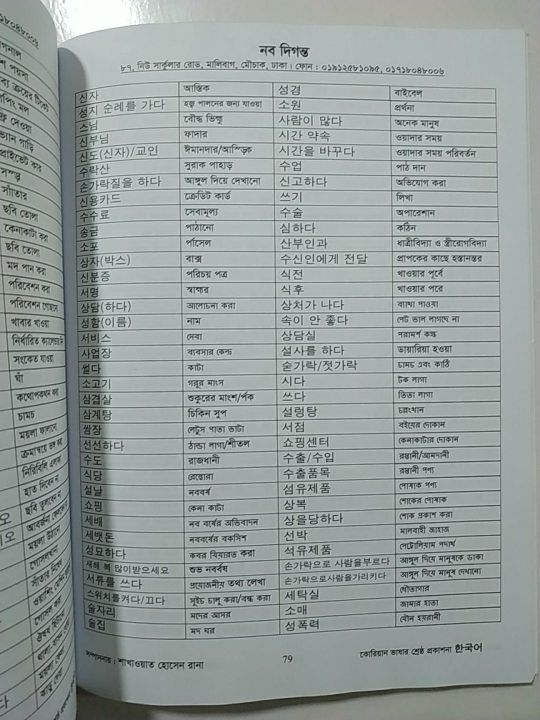 নব দিগন্ত
৮৭, নিউ সার্কুলার রোড, মালিবাগ, মৌচাক, ঢাকা। ফোন : ০১৯১২৫৮১০৯৫, ০১৭১৮০৪৮০০৬
신자 আস্তিক 성경 বাইবেল
성지 순례를 가다 হজ্ব পালনের জন্য যাওয়া 소원 প্রর্থনা
스님 বৌদ্ধ ভিক্ষু 사람이 많다 অনেক মানুষ
신부님 ফাদার 시간 약속 ওয়াদার সময়
신도(신자)/교인 ঈমানদার/আস্তিক 시간을 바꾸다 ওয়াদার সময় পরিবর্তন
수락산 সুরাক পাহাড় 수업 পাঠ দান
손가락질을 하다 আঙ্গুল দিয়ে দেখানো 신고하다 অভিযোগ করা
신용카드 ক্রেডিট কার্ড 쓰기 লিখা
수수료 সেবামূল্য 수술 অপারেশান
송금 পাঠানো 심하다 কঠিন
소포 পার্সেল 산부인과 ধাত্রীবিদ্যা ও স্ত্রীরোগবিদ্যা
상자(박스) বাক্স 수신인에게 전달 প্রাপকের কাছে হস্তান্তর
신분증 পরিচয় পত্র 식전 খাওয়ার পূর্বে
서명 স্বাক্ষর 식후 খাওয়ার পরে
상담(하다) আলোচনা করা 상처가 나다 ব্যাথা পাওয়া
성함(이름) নাম 속이 안 좋다 পেট ভাল লাগছে না
서비스 সেবা 상담실 পরামর্শ কক্ষ
사업장 ব্যবসার কেন্দ্র 설사를 하다 ডায়ারিয়া হওয়া
썰다 কাটা 숟가락/젓가락 চামচ এবং কাঠি
소고기 গরুর মাংস 시다 টক লাগা
삼겹살 শুকুরের মাংশ/র্পক 쓰다 তিতা লাগা
삼계탕 চিকিন সুপ 설렁탕
쌈장 লেটুস পাতা ভাটা 서점 বইয়ের দোকান
선선하다 ঠান্ডা লাগা/শীতল 쇼핑센터 কেনাকাটার দোকান
수도 রাজধানী 수출/수입 রপ্তানী/আমদানী
식당 রেস্তোরা 수출품목 রপ্তানী পণ্য
설날 নববর্ষ 섬유제품 পোষাক পণ্য
쇼핑 কেনা কাটা 상복 শোকের পোষাক
세배 নব বর্ষের অভিবাদন 상을당하다 শোক প্রকাশ করা
세뱃돈 নববর্ষের বকশিশ 선박 মালবাহী জাহাজ
성묘하다 কবর যিয়ারত করা 석유제품 পেট্টোলিয়াম পদার্থ
새해 복 많이받으세요 শুভ নববর্ষ 손가락으로 사람을부르다 আঙ্গুল দিয়ে মানুষকে ডাকা
서류를 쓰다 প্রয়োজনীয় তথ্য লেখা 손가락으로사람을가리키다 আঙ্গুল দিয়ে মানুষ দেখানো
스위치를켜다/끄다 সুইচ চালু করা/বন্ধ করা 세탁실 ধৌতাগার
술자리 মদের আসর 소매 জামার হাতা
술집 মদ ঘর 성폭력 যৌন হয়রানী
সম্পাদনায় : শাখাওয়াত হোসেন রানা 79 কোরিয়ান ভাষার শ্রেষ্ঠ প্রকাশনা 한국어